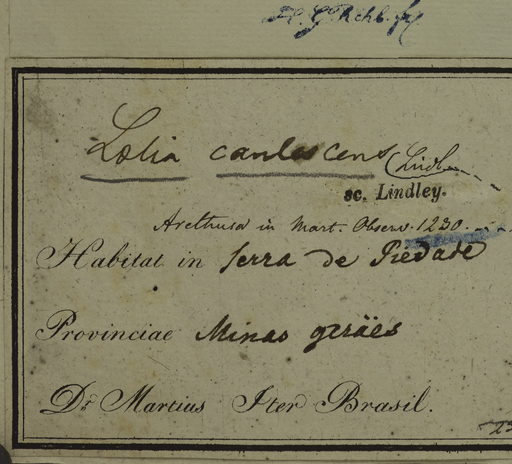 H. G. Rchb. f.
Lælia caulescens Lindl.
sc. Lindley.
Arethusa in Mart. Observ. 1230.
Habitat in Serra de Piedade
Provinciae Minas geräes
Dr Martius Iter Brasil.